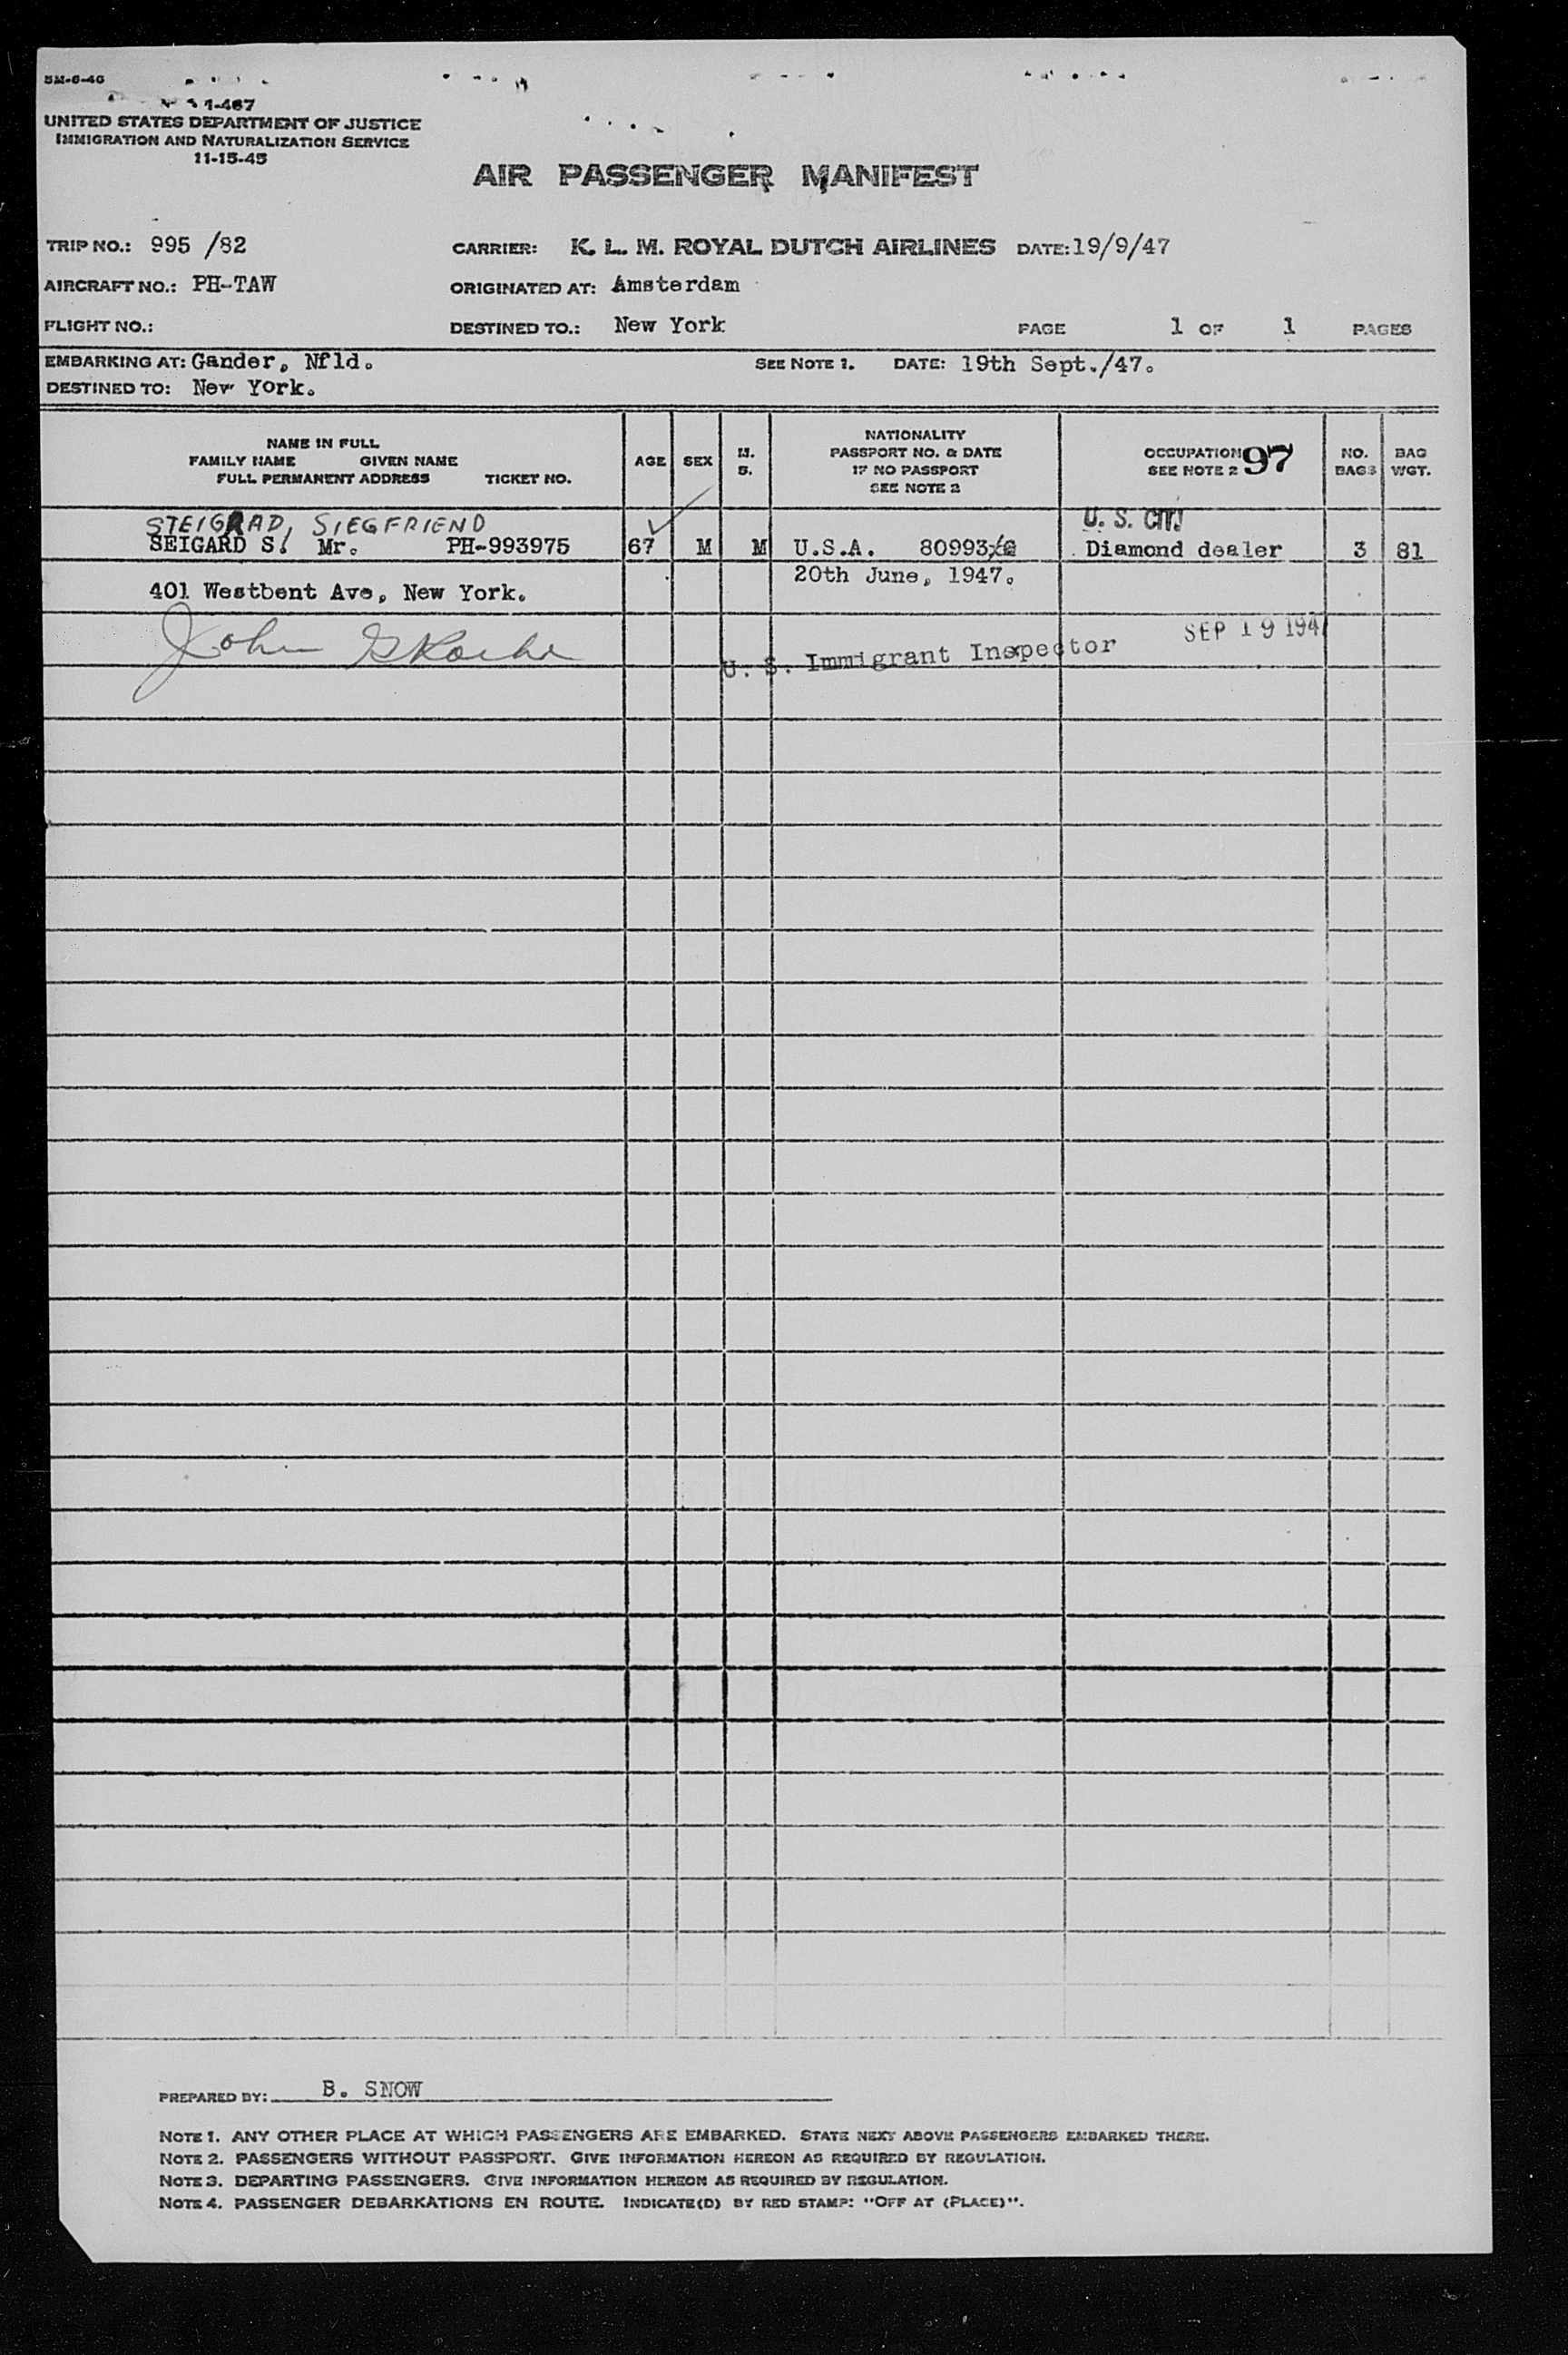 5M-6-46
1-467
UNITED STATES DEPARTMENT OF JUSTICE
IMMIGRATION AND NATURALIZATION SERVICE
11-15-45
AIR PASSENGER MANIFEST
TRIP NO.: 995 /82 CARRIER: K. L. M. ROYAL DUTCH AIRLINES DATE: 19/9/47
AIRCRAFT NO.: PH-TAW ORIGINATED AT: Amsterdam
FLIGHT NO.: DESTINED TO.: New York PAGE 1 OF 1 PAGES
EMBARKING AT: Gander, Nfld. SEE NOTE 1. DATE: 19th Sept./47.
DESTINED TO: New York.
NAME IN FULL
FAMILY NAME GIVEN NAME
FULL PERMANENT ADDRESS TICKET NO.
AGE
SEX
M.
S.
NATIONALITY
PASSPORT NO. & DATE
IF NO PASSPORT
SEE NOTE 2
OCCUPATION
SEE NOTE 2
97
NO.
BAGS
BAG
WGT.
STEIGRAD, SIEGFRIEND U. S. CIT.
SEIGARD S. Mr. PH-993975 67 M M U.S.A. 80993 Diamond dealer 3 81
20th June, 1947.
401 Westbent Ave, New York.
John U. S. Immigrant Inspector SEP 19 1947
PREPARED BY: B. SNOW
NOTE 1. ANY OTHER PLACE AT WHICH PASSENGERS ARE EMBARKED. STATE NEXT ABOVE PASSENGERS EMBARKED THERE.
NOTE 2. PASSENGERS WITHOUT PASSPORT. GIVE INFORMATION HEREON AS REQUIRED BY REGULATION.
NOTE 3. DEPARTING PASSENGERS. GIVE INFORMATION HEREON AS REQUIRED BY REGULATION.
NOTE 4. PASSENGER DEBARKATIONS EN ROUTE. INDICATE(D) BY RED STAMP: "OFF AT (PLACE)".